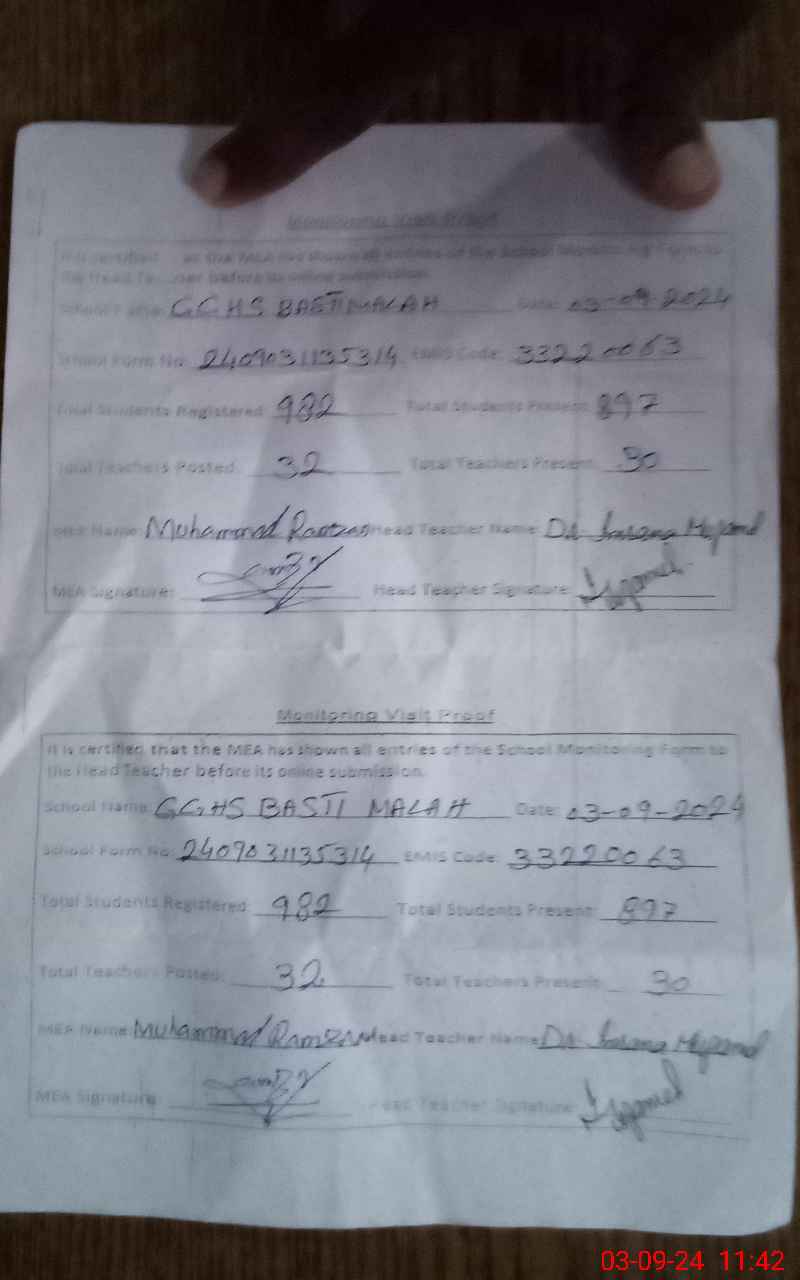 Monitoring Visit Proof
It is certified that the MEA has shown all entries of the School Monitoring Form to
the Head Teacher before its online submission.
School Name: GGHS BASTI MALAH Date: 03-09-2024
School Form No: 2409031135314 EMIS Code: 33220063
Total Students Registered: 982 Total Students Present: 897
Total Teachers Posted: 32 Total Teachers Present: 30
MEA Name: Muhammad Ramzan Head Teacher Name: Dr.
MEA Signature: Head Teacher Signature:
Monitoring Visit Proof
It is certified that the MEA has shown all entries of the School Monitoring Form to
the Head Teacher before its online submission.
School Name: GGHS BASTI MALAH Date: 03-09-2024
School Form No: 2409031135314 EMIS Code: 33220063
Total Students Registered: 982 Total Students Present: 897
Total Teachers Posted: 32 Total Teachers Present: 30
MEA Name: Muhammad Ramzan Head Teacher Name: Dr.
MEA Signature: Head Teacher Signature:
03-09-24 11:42